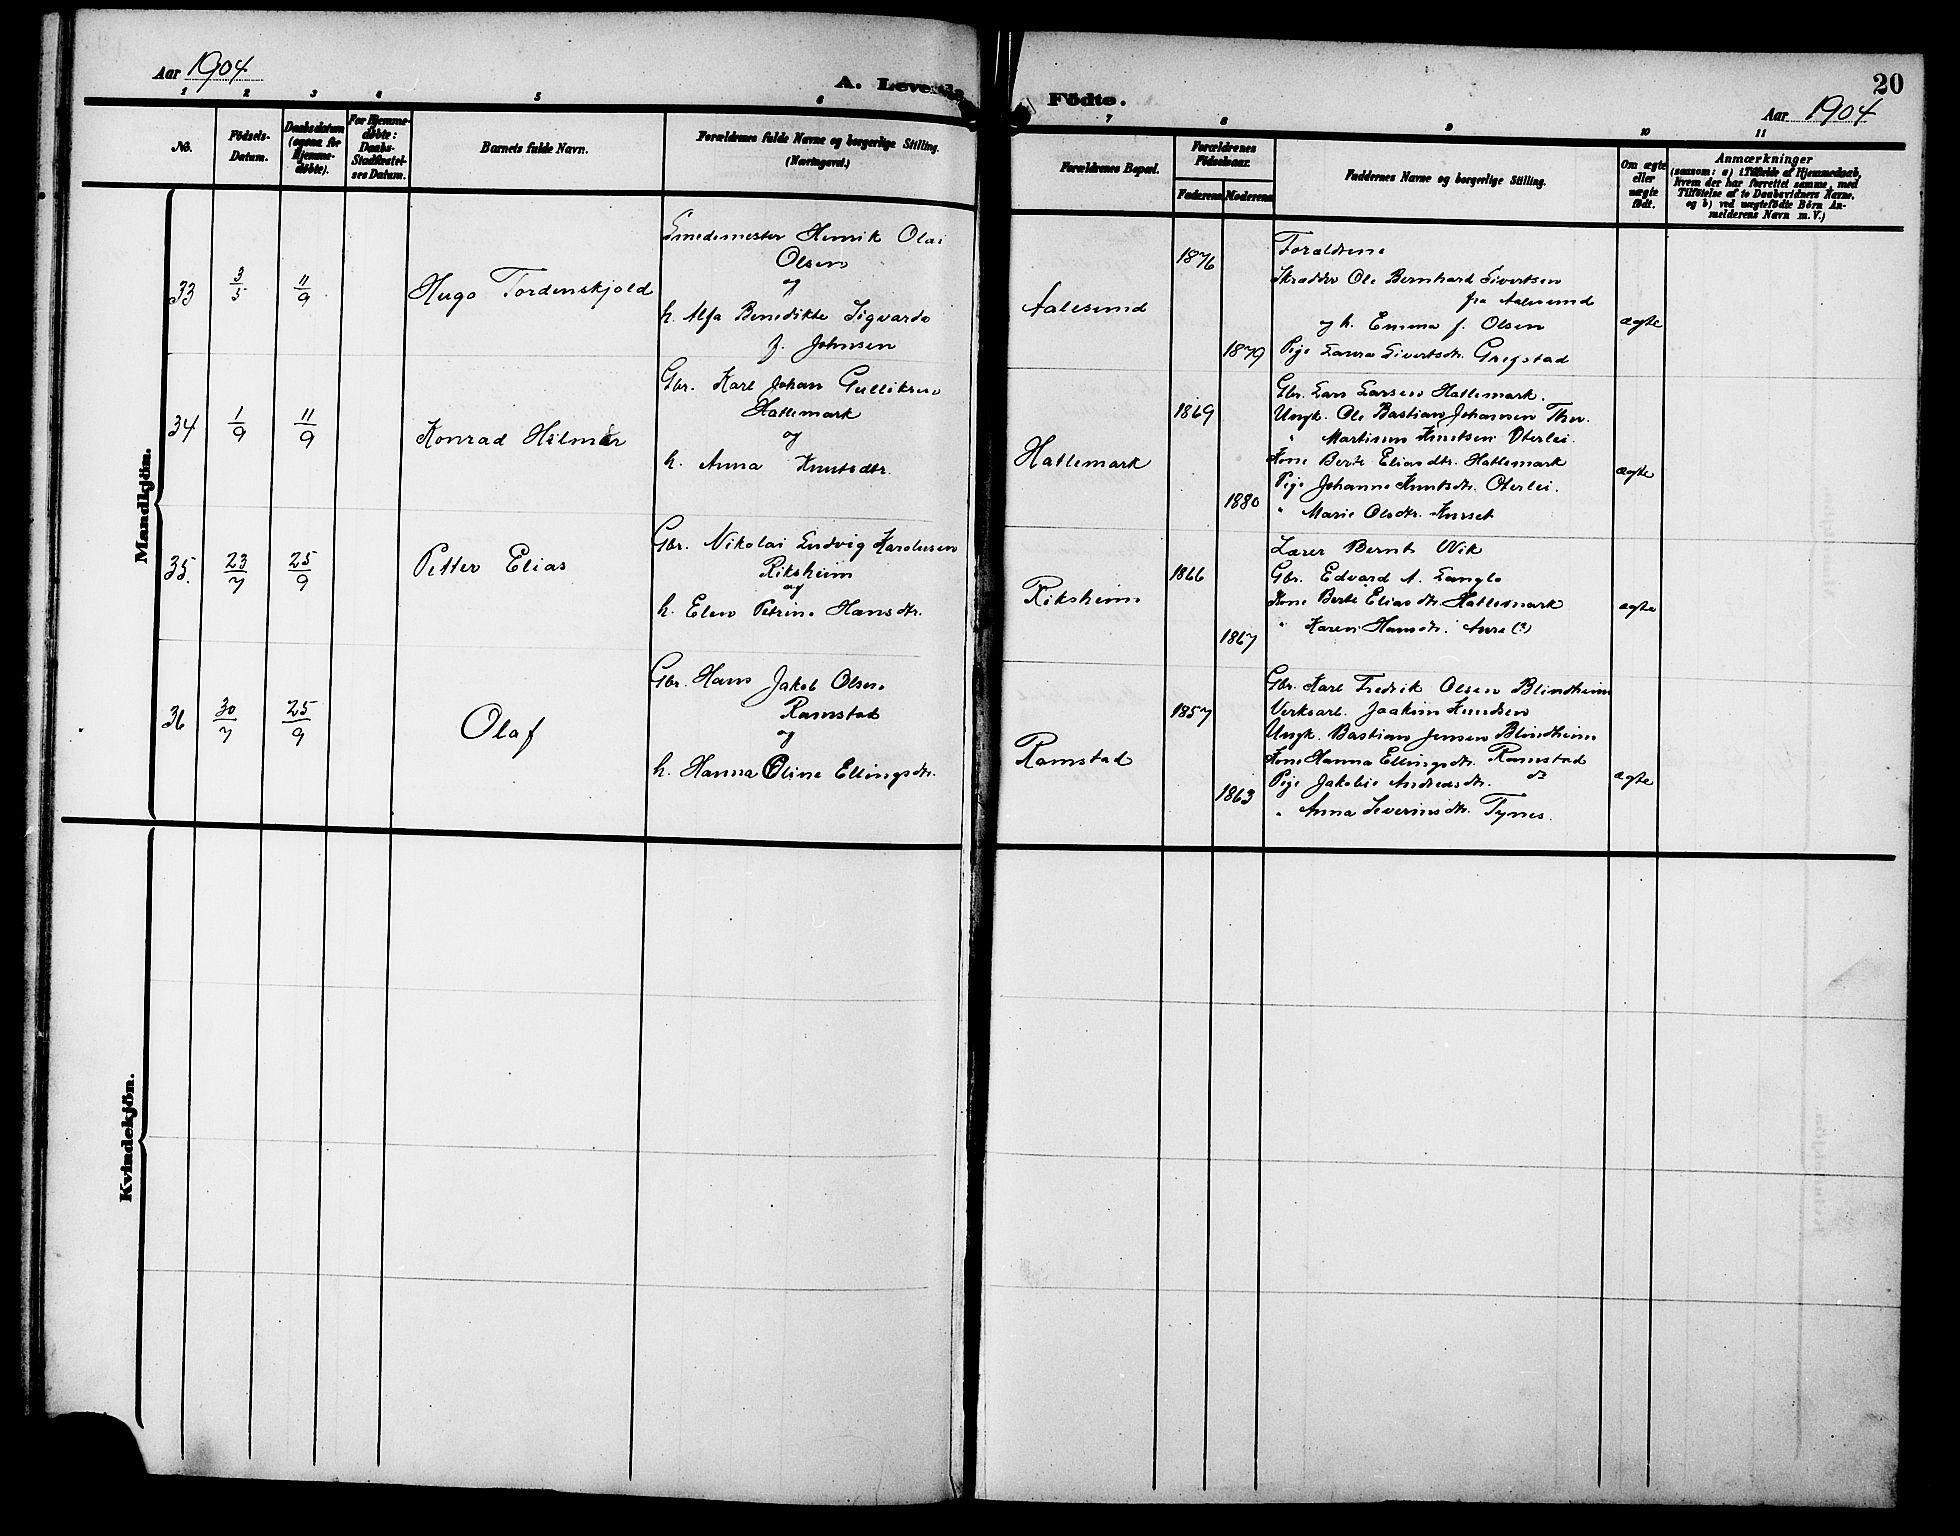 Aar 1904
A. Levende
Födte.
20
Aar 1904
1 2 3 4 5 6
7 8 9 10 11
No.
Födsels-
Datum.
Daabsdatum
(ogsaa for
Hjemme-
döbte).
For Hjemme-
döbte:
Daabs-
Stadfæstel-
ses Datum.
Barnets fulde Navn.
Forældrenes fulde Navne og borgerlige Stilling.
(Næringsvei.)
Forældrenes Bopæl.
Forældrenes
Födselsaar.
Faderens
Moderens
Faddernes Navne og borgerlige Stilling.
Om ægte
eller
uægte
födt.
Anmærkninger
(saasom: a) i Tilfælde af Hjemmedaab,
hvem der har forrettet samme, med
Tilföielse af to Daabsvidners Navne,
og b) ved uægtefödte Börn An-
melderens Navn m. V.)
Mandkjön.
33
3/5
11/9
Hugo Tordenskjold
Smedemester Henrik Olai
Olsen
og
h. Alfa Benedikte Sigvarda
f. Johnsen
Aalesund
1876
1879
Forældrene
Skrædder Ole Bernhard Sivertsen
fra Aalesund
og h. Emma f. Olsen
Pige Laura Sivertsdtr. Grepstad
ægte
34
1/9
11/9
Konrad Hilmar
Gbr. Karl Johan Gulliksen
Hatlemark
og
h. Anna Knutsdtr.
Hatlemark
1869
1880
Gbr. Lars Larsen Hatlemark.
Ungk. Ole Bastian Johansen
" Martinus Knutsen Oterlei.
Kone Berte Eliasdtr. Hatlemark
Pige Johanne Knutsdtr. Oterlei.
" Marie Olsdtr. Kurset
ægte
35.
23/7
25/9
Petter Elias
Gbr. Nikolai Ludvig Karolusen
Riksheim
og
h. Elen Petrine Hansdtr.
Riksheim
1866
1867
Lærer Bernt Vik
Gbr. Edvard A. Langlo
Kone Berte Eliasdtr. Hatlemark
" Karen Hansdtr. Aure (?)
ægte
36
30/7
25/9
Olaf
Gbr. Hans Jakob Olsen
Ramstad
og
h. Hanna Oline Ellingsdtr.
Ramstad
1857
1863
Gbr. Karl Fredrik Olsen Blindheim
Verksarb. Joakim Knudsen
Ungk. Bastian Jensen Blindheim
Kone Hanna Ellingsdtr. Ramstad
Pige Jakobie Andreasdtr. do
" Anna Severinsdtr. Tynes.
ægte
Kvindekjön.